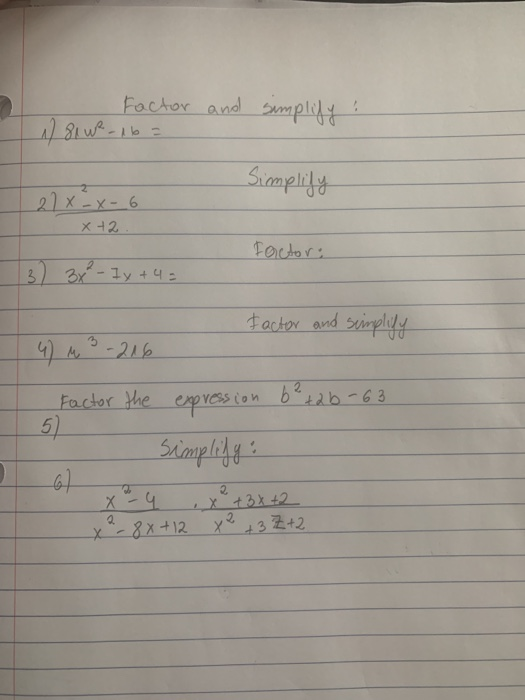 Factor and simplify:
1) 81w² - 16 =
Simplify
2) x² - x - 6
x + 2
Factor:
3) 3x² - 7x + 4 =
Factor and simplify
4) u³ - 216
Factor the expression b² + 2b - 63
5)
Simplify:
6)
x² - 4 . x² + 3x + 2
x² - 8x + 12 x² + 3z + 2